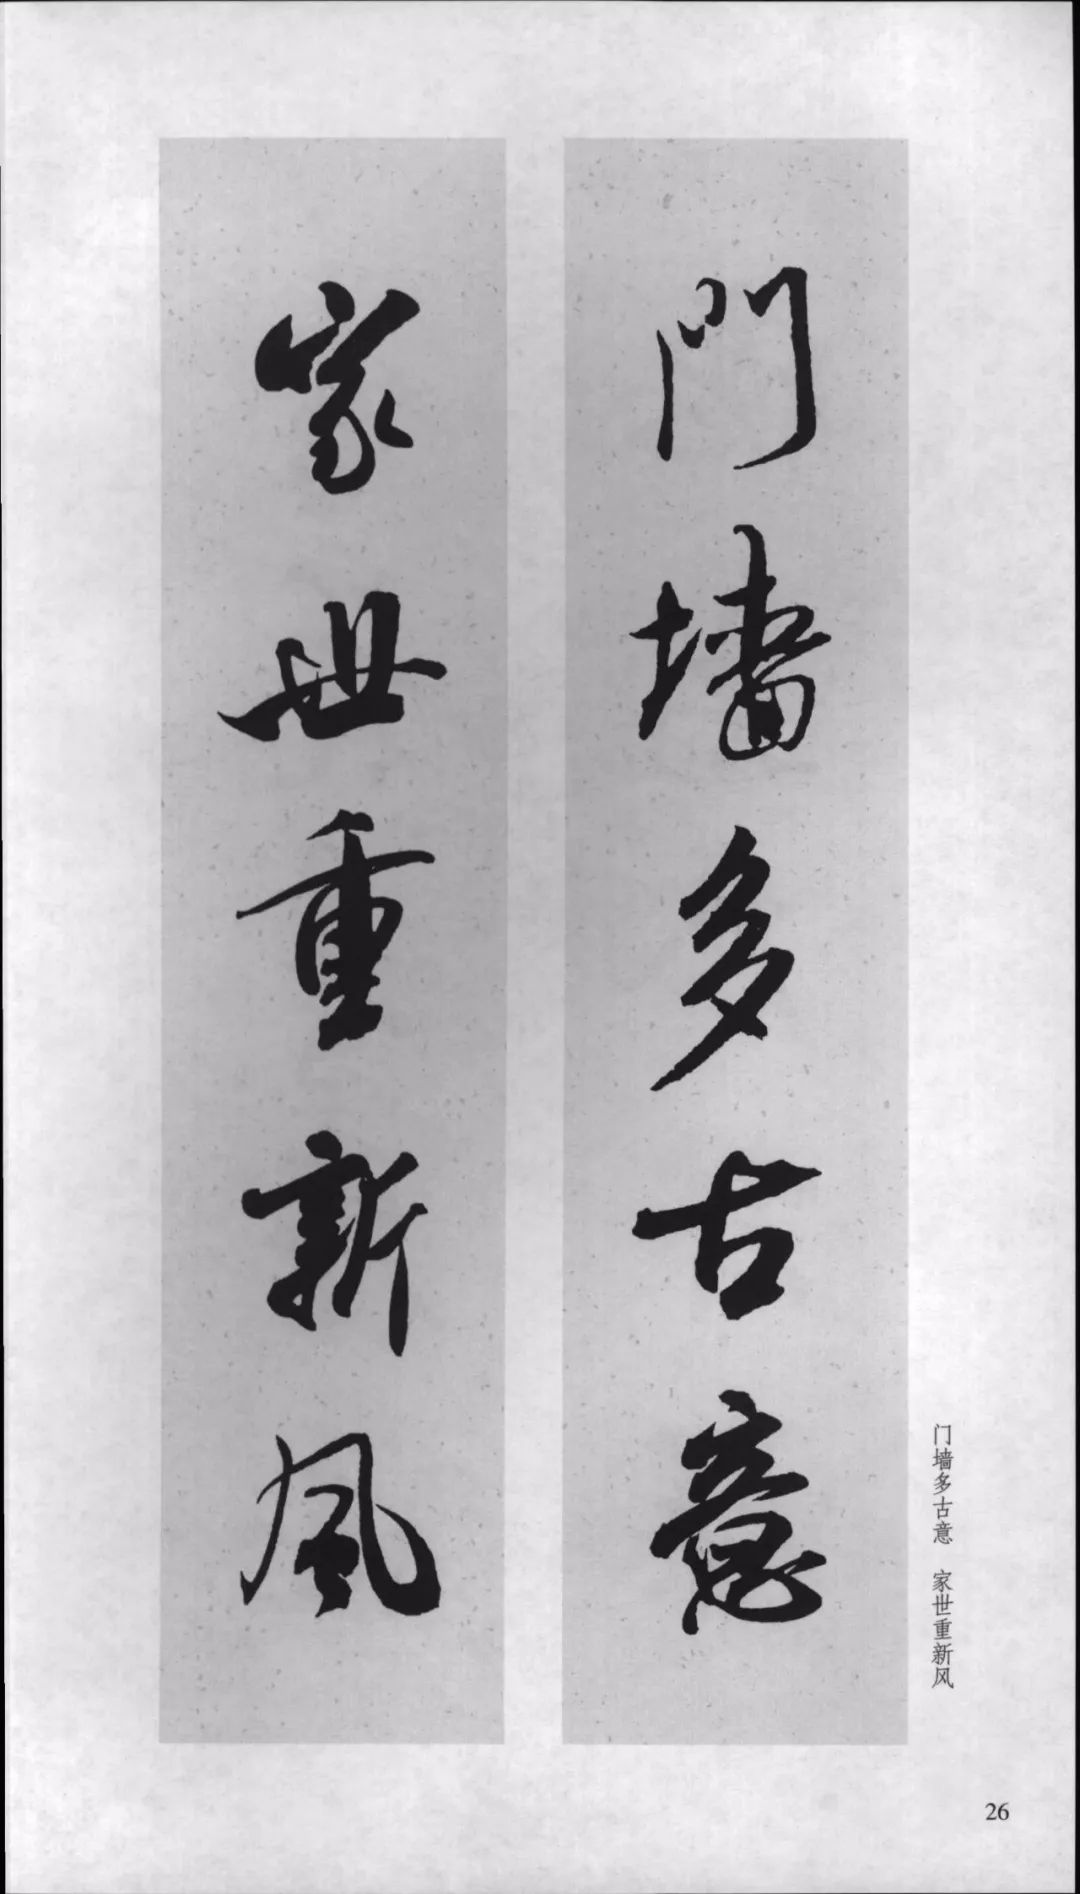 門墙多古意
家世重新風
门墙多古意　家世重新风
26